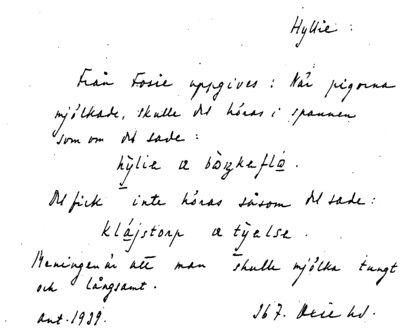 Hyllie :
Från Fosie uppgives : När pigorna
mjölkade, skulle det höras i spannen
som om det sade :
hylie a
Det fick inte höras såsom det sade :
klájstorp a tyelse .
Meningen är att man skulle mjölka tungt
och långsamt .
ant. 1939.